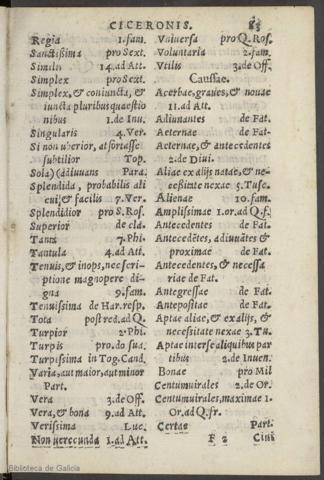 CICERONIS. 83
Regia 1.fam.
Sanctissima pro Sext.
Similis 14.ad Att.
Simplex pro Sext.
Simplex, & coniuncta, &
iuncta pluribus quæstio
nibus 1.de Inu.
Singularis 4.Ver.
Si non uberior, at fortasse
subtilior Top.
Sola) (adiuuans Para.
Splendida, probabilis ali
cui, & facilis 7.Ver.
Splendidior pro S.Ros.
Superior de cla.
Tanta 7.Phi.
Tantula 4.ad Att.
Tenuis, & inops, nec scri-
ptione magnopere di-
gna 9.fam.
Tenuissima de Har.resp.
Tota post red.ad Q.
Turpior 2.Phi.
Turpis pro.do sua.
Turpissima in Tog.Cand.
Varia, aut maior, aut minor
Part.
Vera 3.de Off.
Vera, & bona 9.ad Att.
Verissima Luc.
Non uerecunda 1.ad Att.
Vniuersa pro Q.Ros.
Voluntaria 2.fam.
Vtilis 3.de Off.
Caussae.
Acerbae, graues, & nouae
11.ad Att.
Adiunantes de Fat.
Aeternae de Fat.
Aeternae, & antecedentes
2.de Diui.
Aliae ex alijs natae, & ne-
cessitate nexae 5.Tusc.
Alienae 10.fam.
Amplissimae 1.or.ad Q.f.
Antecedentes de Fat.
Antecedētes, adiunātes &
proximae de Fat.
Antecedentes, & necessa
riae de Fat.
Antegressae de Fat.
Antepositae de Fat.
Aptae aliae, & ex alijs, &
necessitate nexae 3.Tu.
Aptae inter se aliquibus par
tibus 2.de Inuen.
Bonae pro Mil
Centumuirales 2.de Or.
Centumuirales, maximae 1.
Or.ad Q.fr.
Certae Part.
F 2 Ciui
Biblioteca de Galicia